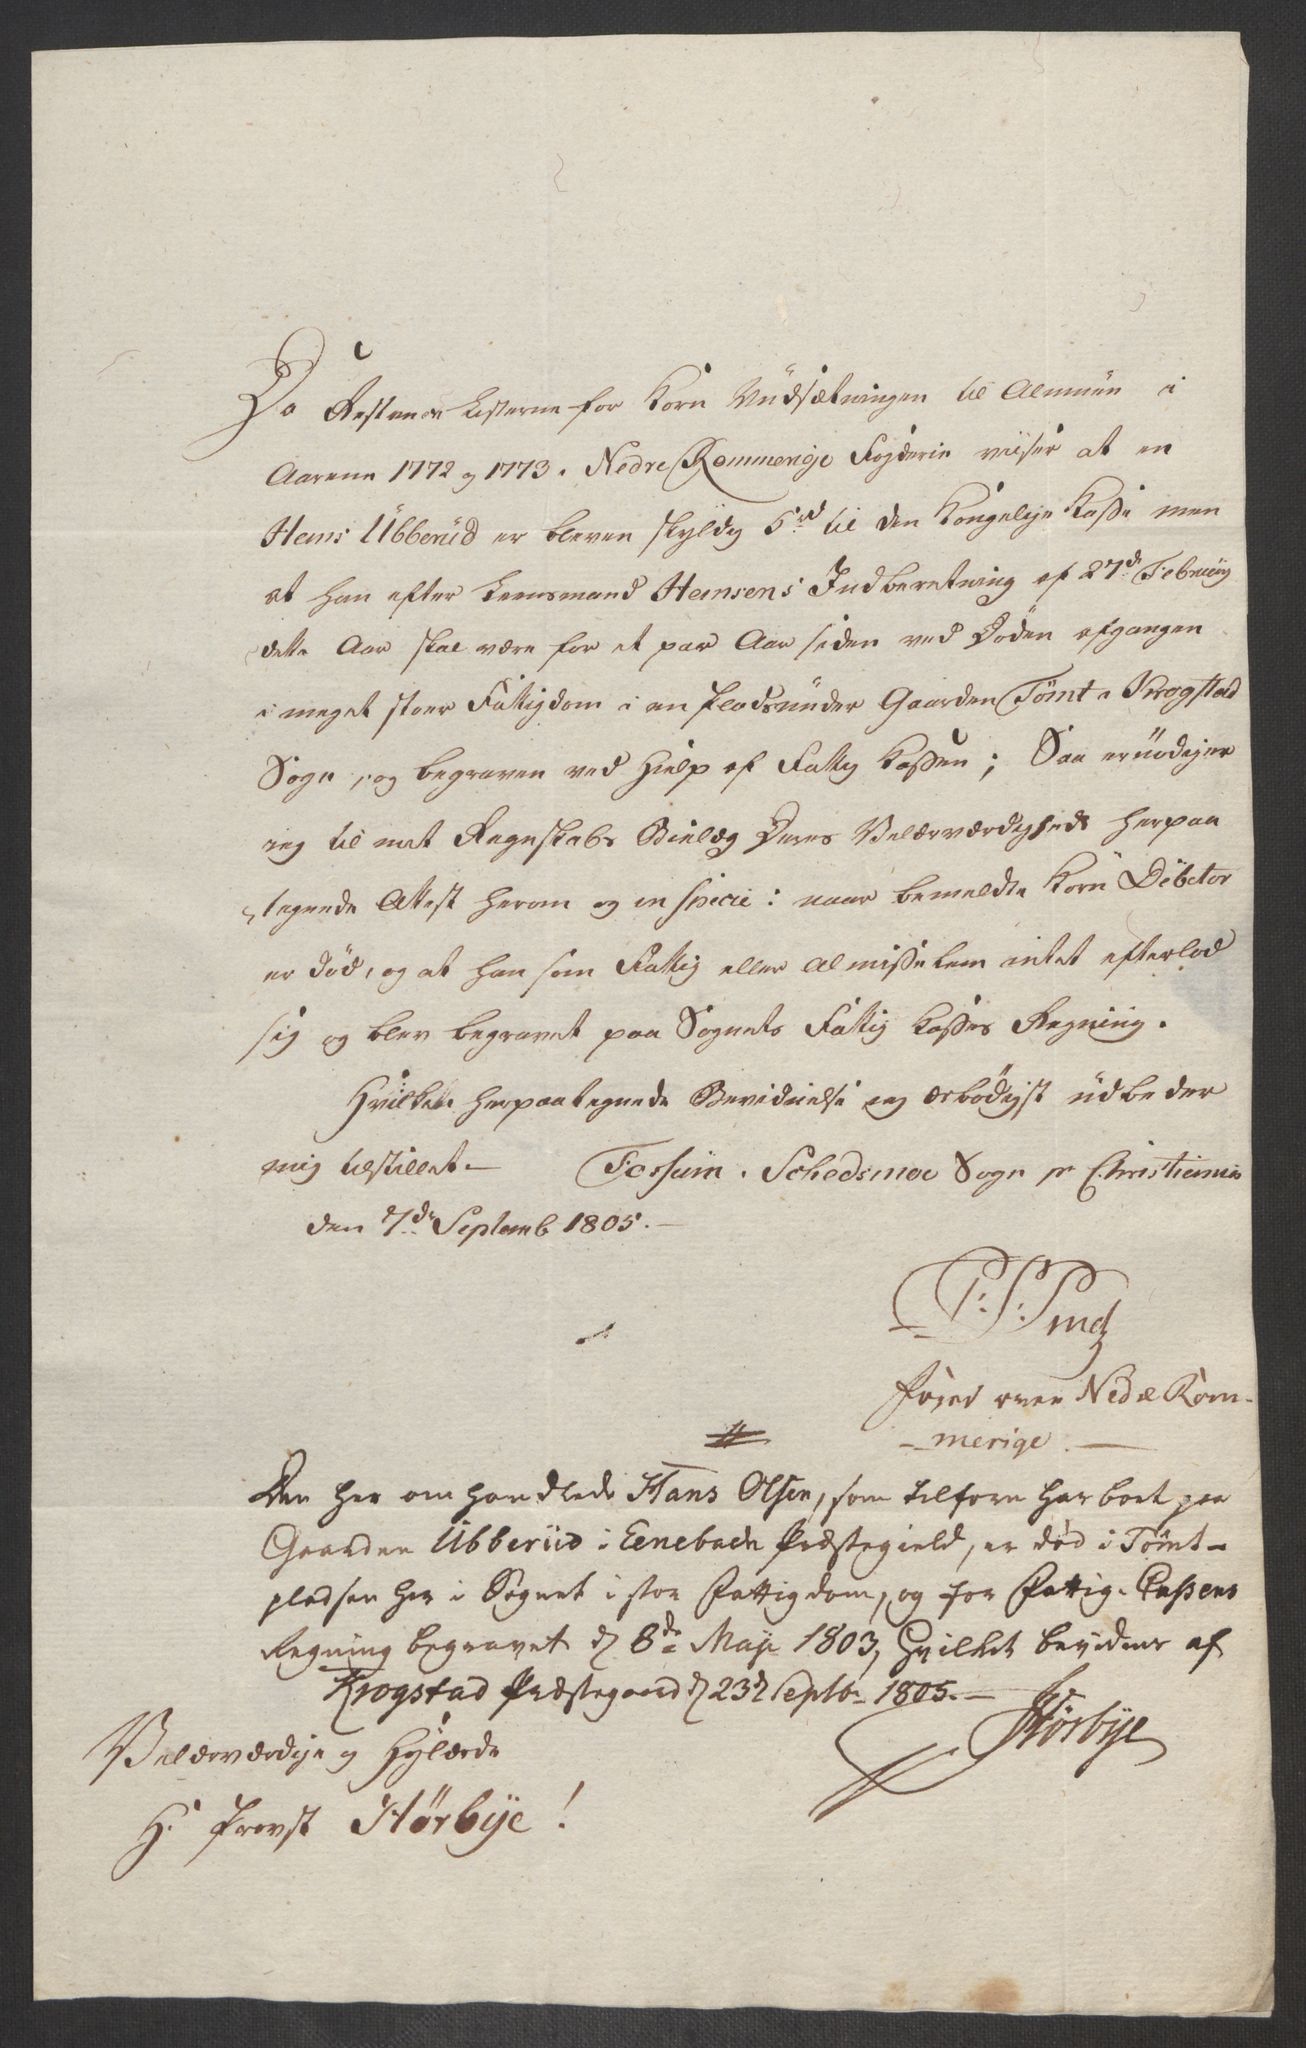 Da Restance Listerne for Korn Uudsætningen til Almuen i
Aarene 1772 og 1773. Nedre Rommerige Fogderie viiser at en
Hans Ubberud er bleven skyldig 5 rd til den Kongelige Kasse men
at han efter Leensmand Hansens Indberetning af 27de Februarij
dette Aar skal være for et par Aar siden ved Døden afgangen
i meget stoer Fattigdom i en Plads under Gaarden Tømt i Krogstad
Sogn, og begraven ved Hielp af Fattig Kassen; Saa er nødiger
ieg til mit Regnskabs Bielæg Deres Velærværdigheds herpaa
tegnede Attest herom og in specie: naar bemeldte Korn Debetor
er død, og at han som Fattig eller Almisselem intet efterlod
sig og blev begravet paa Sognets Fattig Kasses Regning.
Hvilken herpaategnede Bevidnelse ieg ærbødigst udbeder
mig tilstillet. Fossum i Schedsmoe Sogn pr Christiania
den 7de Septemb 1805.
Foged over Nedre Rom-
merige.
Den her omhandlede Hans Olsen, som tilforn har boet paa
Gaarden Ubberud i Eenebach Præstegield, er død i Tømt-
pladsen her i Sognet i stor Fattigdom, og for Fattig-Cassens
Regning begravet d 8de Maji 1803, hvilket bevidnes af
Krogstad Præstegaard d 23d Septbr 1805.
Hørbye
Velærværdige og Høylærde
Hr Provst Hørbye!